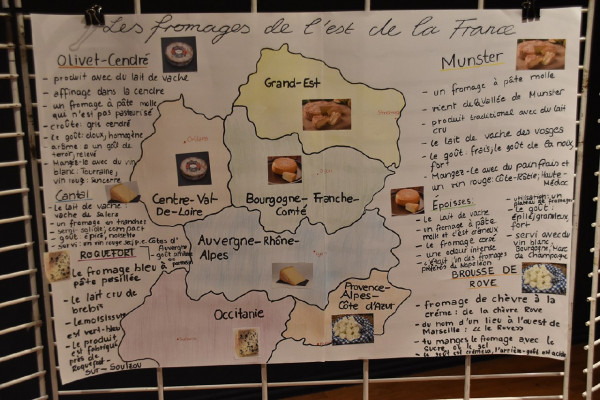 Les fromages de l'est de la France
Olivet-Cendré
- produit avec du lait de vache
- affinage dans la cendre
- un fromage à pâte molle
qui n'est pas pasteurisé
- croûte: gris cendré
- le goût: doux, homogène
arôme a un goût de
terroir, relevé
- Mangez-le avec du vin
blanc: Tourraine,
vin rouge: sancerre
Cantal
- Le lait de vache:
vache de salers
- un fromage en tranches
semi-solide, compact
goût: épicé, noisette
- servi: en vin rouge sec p.e. Côtes d'
Auvergne
ROQUEFORT
- Le fromage bleu à
pâte persillée
- Le lait cru de
brebis
- Le moisissure
est vert-bleu
- Le produit
est fabriqué
près de
Roquefort-
Sur-Soulzou
Grand-Est
Orléans
Centre-Val-
De-Loire
Bourgogne-
Comté
Franche-
Auvergne-Rhône-
Alpes
Provence-
Alpes-
Côte d'Azur
Occitanie
Munster
- un fromage à pâte molle
- vient de la Vallée de Munster
- produit traditional avec du lait
cru
- le lait de vache des vosges
- le goût: frais, le goût de la noix,
fort
- Mangez-le avec du pain frais et
un vin rouge: Côte-Rôtie, Haute-
Médoc
Époisses
- Le lait de vache
- un fromage à pâte
molle et c'est crémeux
- Le fromage cendré
- une odeur intense
- c'était l'un des fromages
préférés de Napoléon
- le goût:
épicé, granuleux,
fort
- servi avec du
vin blanc:
Bourgogne, Marc
de Champagne
BROUSSE DE
ROVE
- fromage de chèvre à la
crème: de la chèvre Rove
- du nom d'un lieu à l'ouest de
Marseille: le Rove
- tu manges le fromage avec le
sucre ou le sel
- le goût est crémeux, l'arrière-goût est acide